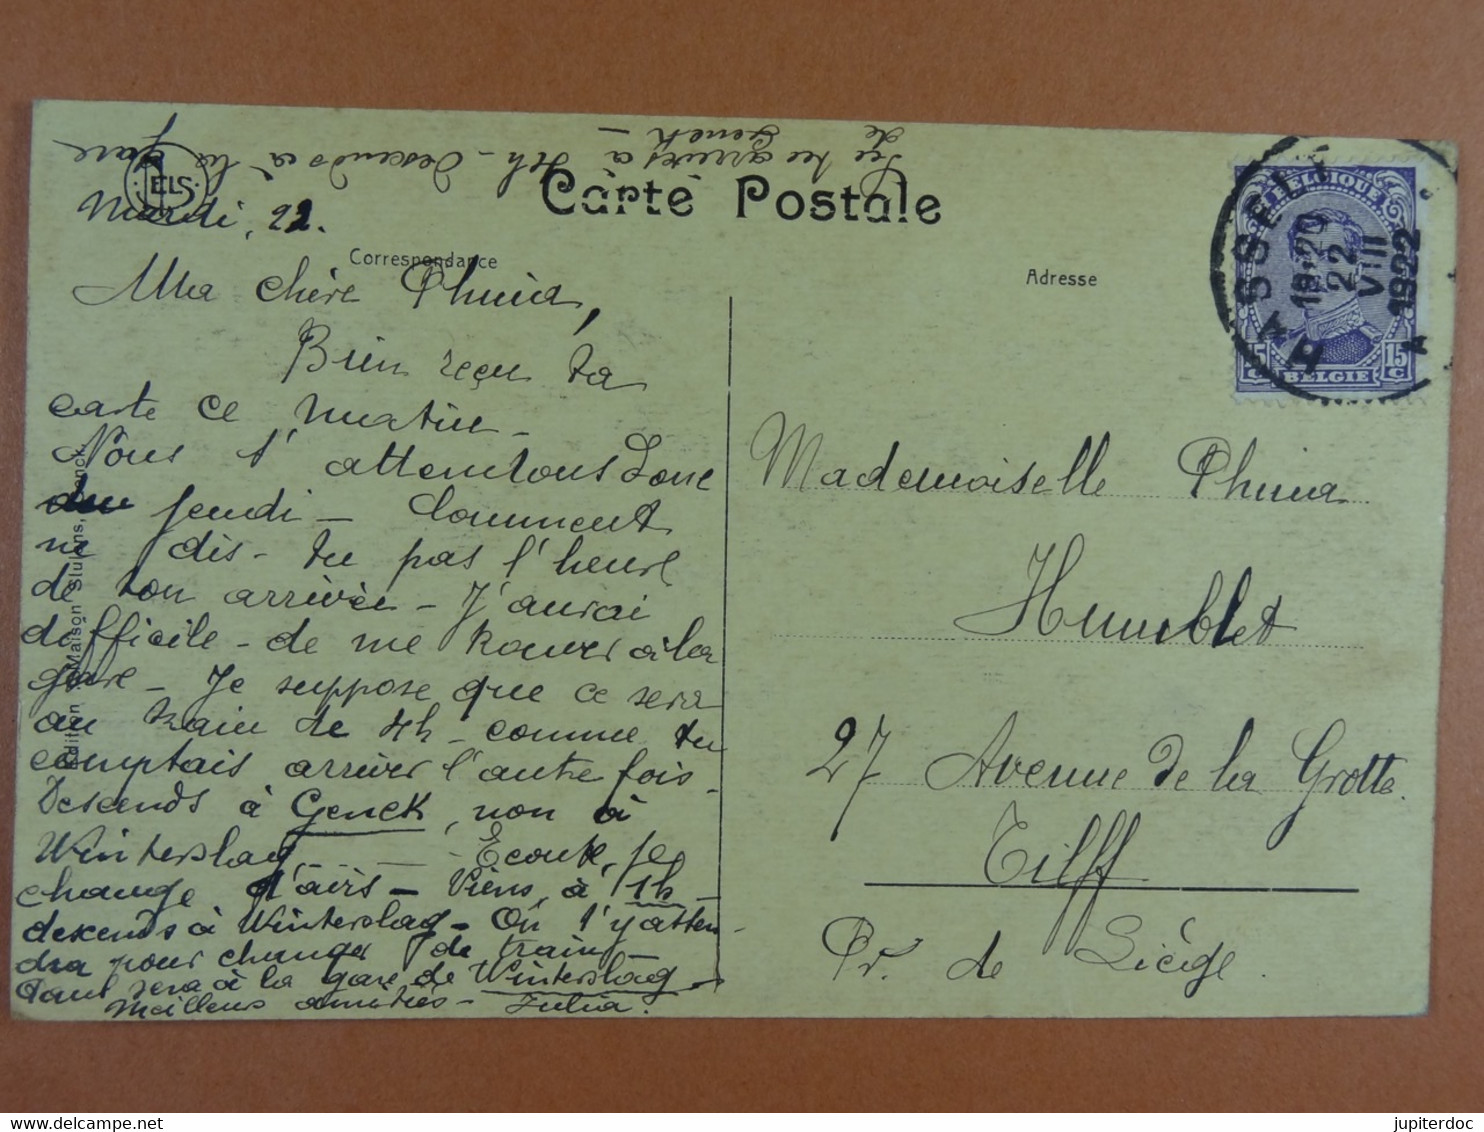 Si tu arrives à 4h - Descends à la gare
de
Genck -
NELS
Carte Postale
Mardi, 22.
Correspondance
Adresse
BELGIQUE
HASSELT
19-20
22
VIII
1922
A
15 C 15 C
BELGIE
Ma chère Phina,
Bien reçu ta
carte ce matin -
Nous t'attendons donc
jeudi - Comment
ne dis-tu pas l'heure
de ton arrivée - J'aurai
difficile - de me trouver à la
gare - Je suppose que ce sera
au train de 4h - comme tu
comptais arriver l'autre fois -
Descends à Genck, non à
Winterslag. - Ecoute, je
change d'avis - Viens à 1h -
descends à Winterslag - On t'y atten-
dra pour changer de train -
Paul sera à la gare de Winterslag -
Meilleurs amitiés - Julia.
Edition Maison Stulens, Genck.
Mademoiselle Phina
Humblet
27 Avenue de la Grotte
Tilff
Pr. de Liège.
jupiterdoc